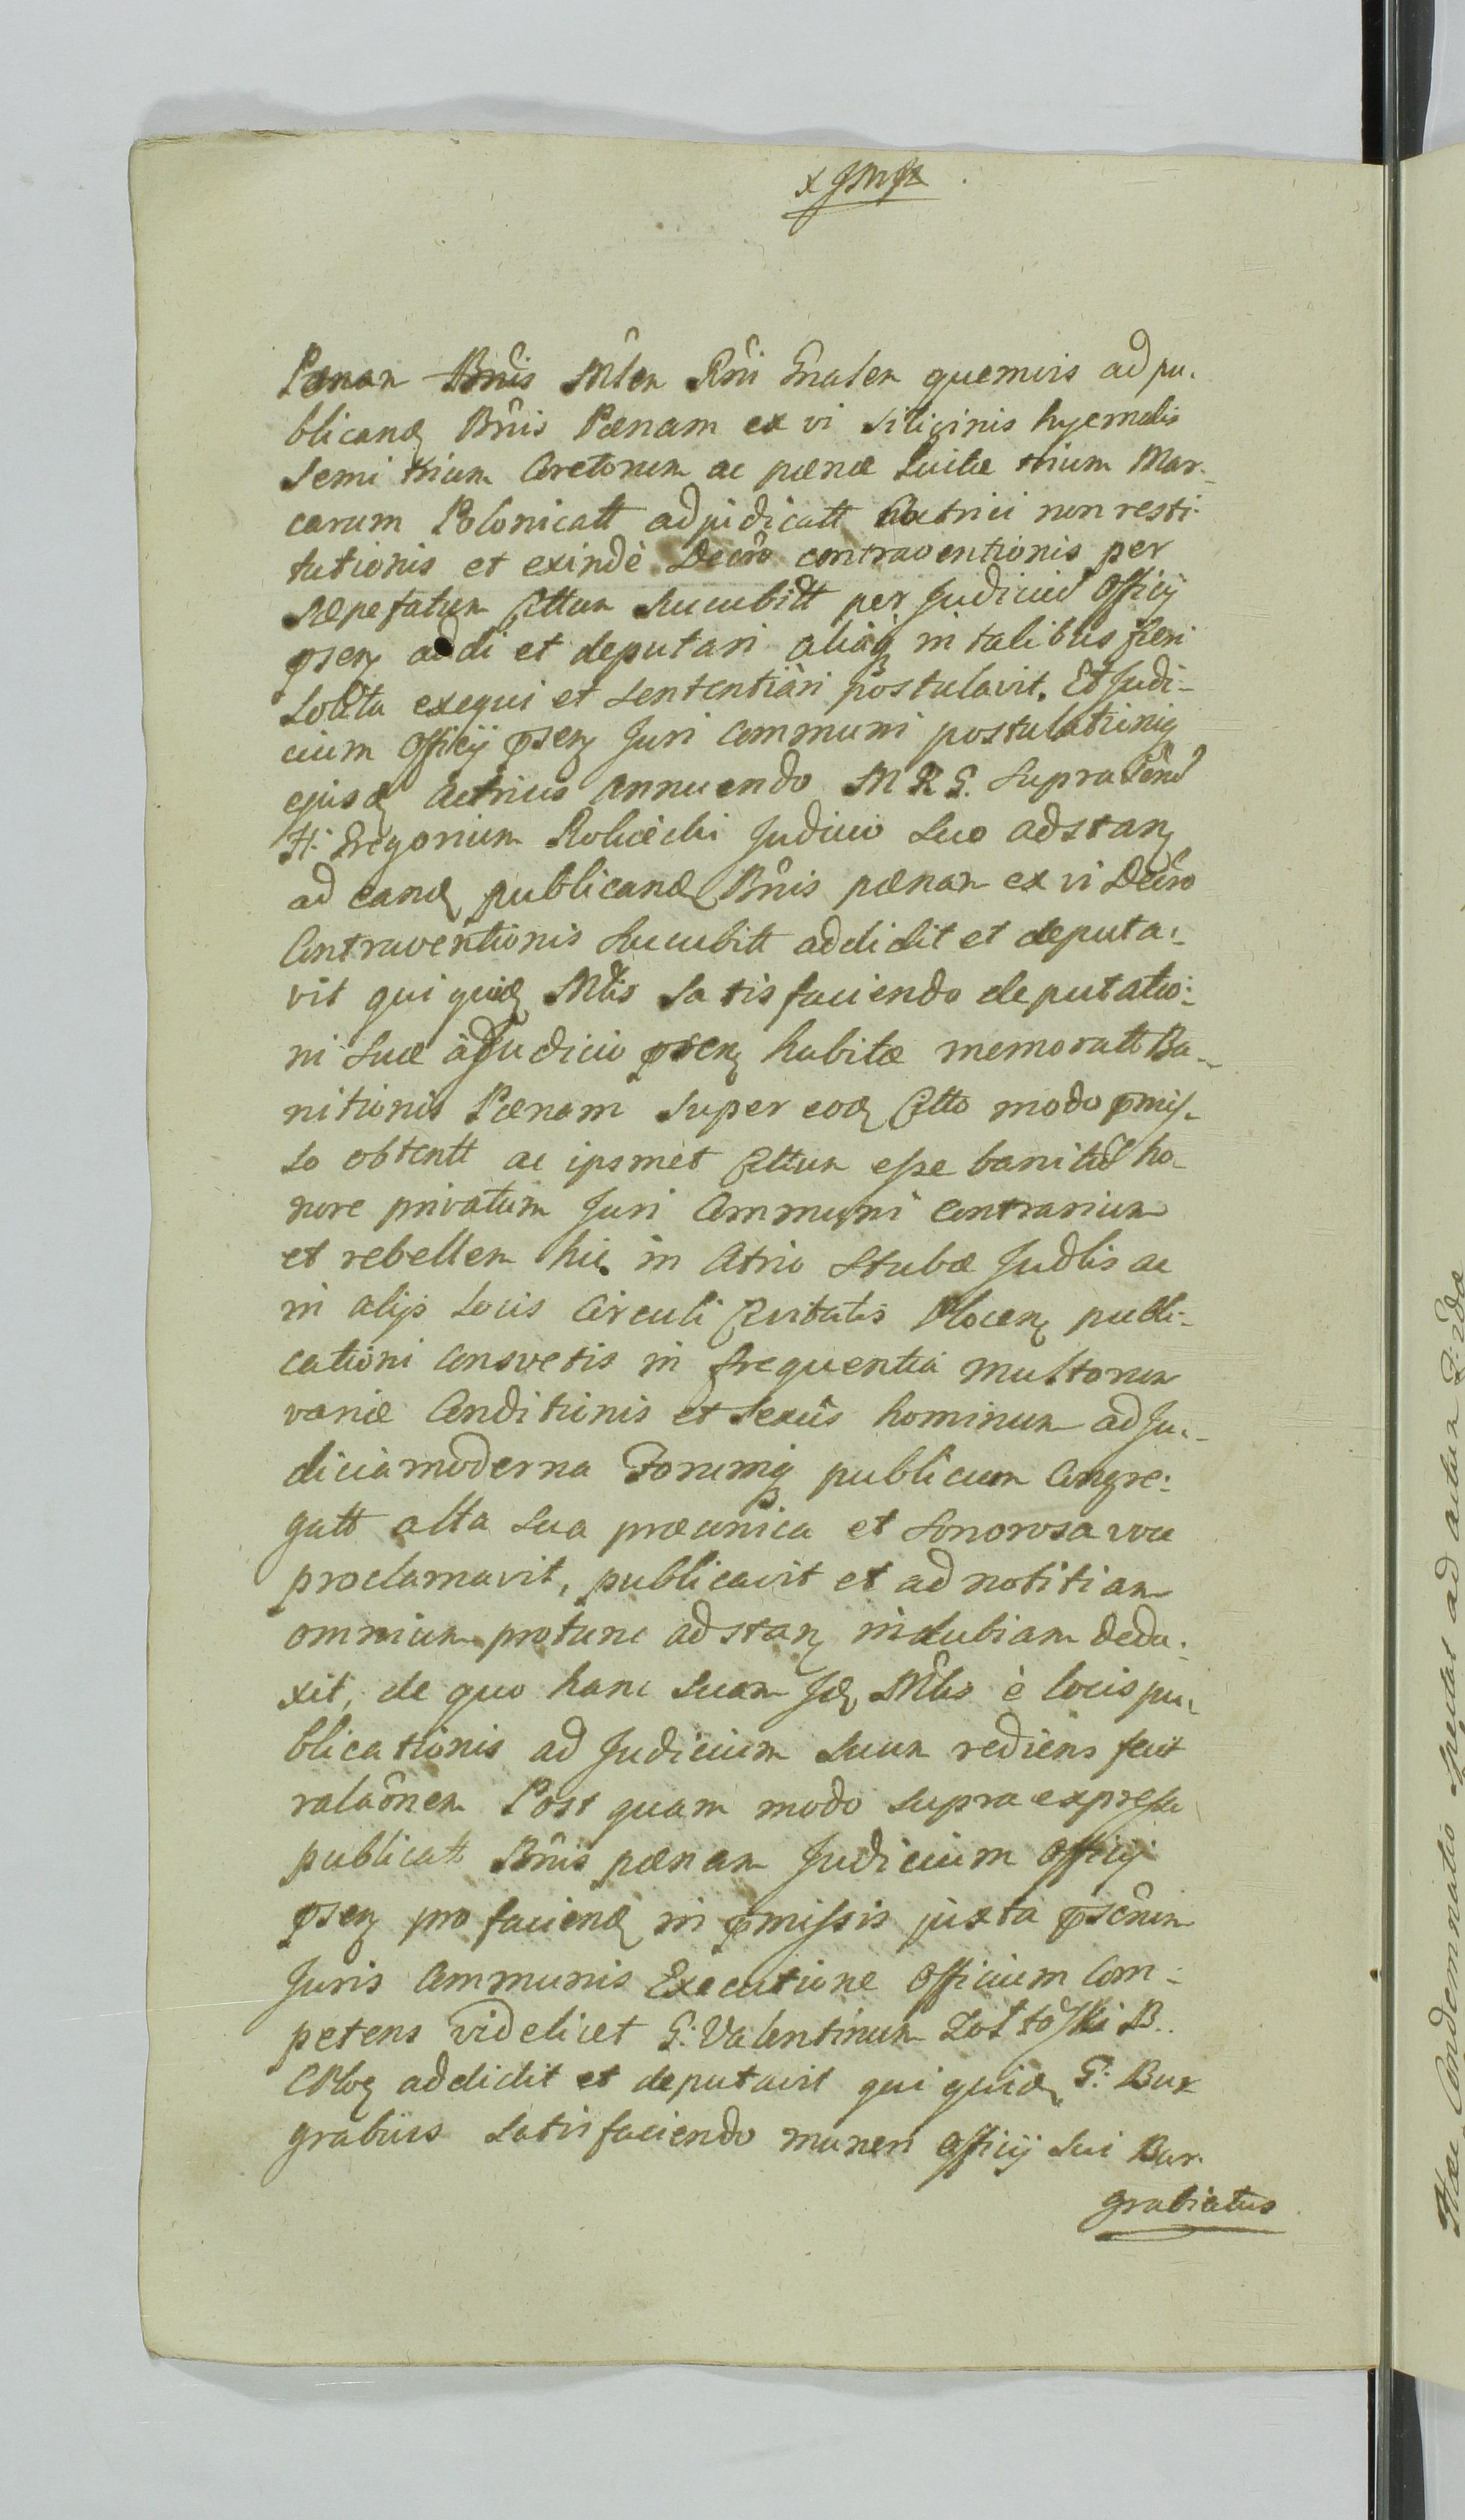 Pænam Bnis Mlem Rni Gnalem quemvis ad pu-
blicand Bnis Pænam ex vi siliginis hyemalis
semi trium Coretorum ac pænæ luitæ trium Mar-
carum Polonicatt adjudicatt Actrici non resti-
tutionis et exinde Decro contraventionis per
sæpefatum Cttum sucubitt per Judiciu Officij
pntis addi et deputari aliaq in talibus fieri
solita exequi et sententiari postulavit. Et Judi-
cium Officij psen Juri Communi postulationiq
ejusd Actricis Annuendo M R G. supra
H: Gregorium Judicio suo adstan
ad eand publicand Bnis pænam ex vi Decro
Contraventionis sucubitt addidit et deputa-
vit qui quid Mtis satisfaciendo deputatio-
ni suæ à Judicio psen habitæ memoratt Ba-
nitionis Pænam super eod Ctto modo pmis-
so obtentt ac ipsmet Cttum esse banitu ho-
nore privatum Juri Communi Contrarium
et rebellem hic in Atrio Stubæ Judlis ac
in alijs Locis Circuli Civitatis Plocen publi-
cationi Consvetis in frequentia multorum
variæ Conditionis et Sexûs hominum ad Ju-
dicia moderna Forumq publicum Congre-
gatt alta sua præconica et Sonorosa voce
proclamavit, publicavit et ad notitiam
omnium protunc adstan indubiam dedu-
xit, de quo hanc suam Jd Mlis è locis pu-
blicationis ad Judicium suum rediens fecit
ralaônem Post quam modo supra expresso
publicatt Bnis pænam Judicium Officij
psen pro faciend in pmissis juxta pscrum
Juris Communis Executione Officium Com-
petens videlicet G: Valentinum B.
CPlo addidit et deputavit qui quid G: Bur
grabius satisfaciendo muneri Officij sui Bur-
grabiatus